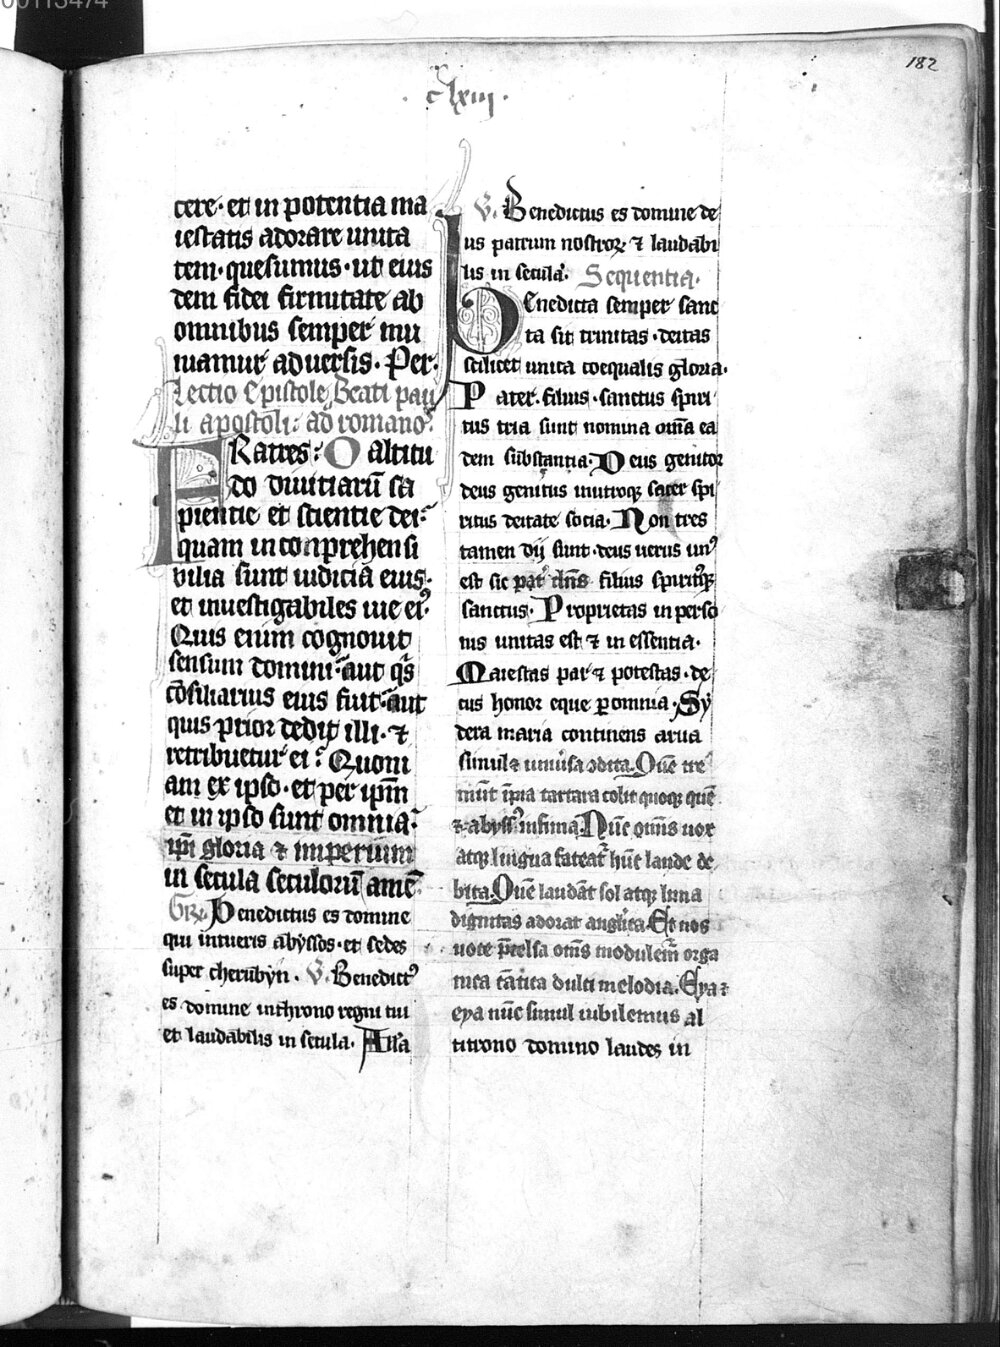 00113474
182
clxiij.
cere· et in potentia ma
iestatis adorare unita
tem· quesumus· ut eius
dem fidei firmitate ab
omnibus semper mu
niamur aduersis· Per·
Lectio Epistole Beati pau
li apostoli: ad romanoꝝ.
FRatres: O altitu
do diuitiarū sa
pientie et scientie dei:
quam inconprehensi
bilia sunt iudicia eius·
et inuestigabiles uie ei9.
Quis enim cognouit
sensum domini: aut qͥs
cōsiliarius eius fuit: aut
quis prior dedit illi· ⁊
retribuetur ei: Quoni
am ex ipso· et per ipm̄
et in ipso sunt omnia:
ipī gloria ⁊ imperium
in secula seculorū amē
Gr̄. Benedictus es domine
qui intueris abyssos· et sedes
super cherubyn· V. Benedict9
es domine inthrono regni tui
et laudabilis in secula· Alla
V. Benedictus es domine de
us patrum nostroꝝ ⁊ laudabi
lis in secula. Sequentia·
BEnedicta semper sanc
ta sit trinitas· deitas
scilicet unita coequalis gloria·
Pater· filius· sanctus spiri
tus tria sunt nomina om̄a ea
dem substantia: Deus genitor
deus genitus inutroqꝫ sacer spi
ritus deitate socia· Non tres
tamen dij sunt· deus uerus un9
est sic pat͛ dn̄s filius spiritꝰqꝫ
sanctus· Proprietas in perso
nis unitas est ⁊ in essentia·
Maiestas par ⁊ potestas· de
cus honor eque ꝑ omnia· Sy
dera maria continens arua
simul ⁊ uniu͛sa ↄdita. Quē tre
mūt īpia tartara colit quoqꝫ quē
⁊ abyss9 infima. Nūc om̄s uox
atqꝫ lingua fateat᷑ hūc laude de
bita. Quē laudāt sol atqꝫ luna
dignitas adorat angl̓ica. Et nos
uoce p̄celsa om̄s modulem᷑ orga
nica cātica dulci melodia. Eya ⁊
eya nūc simul iubilemus al
titrono domino laudes in